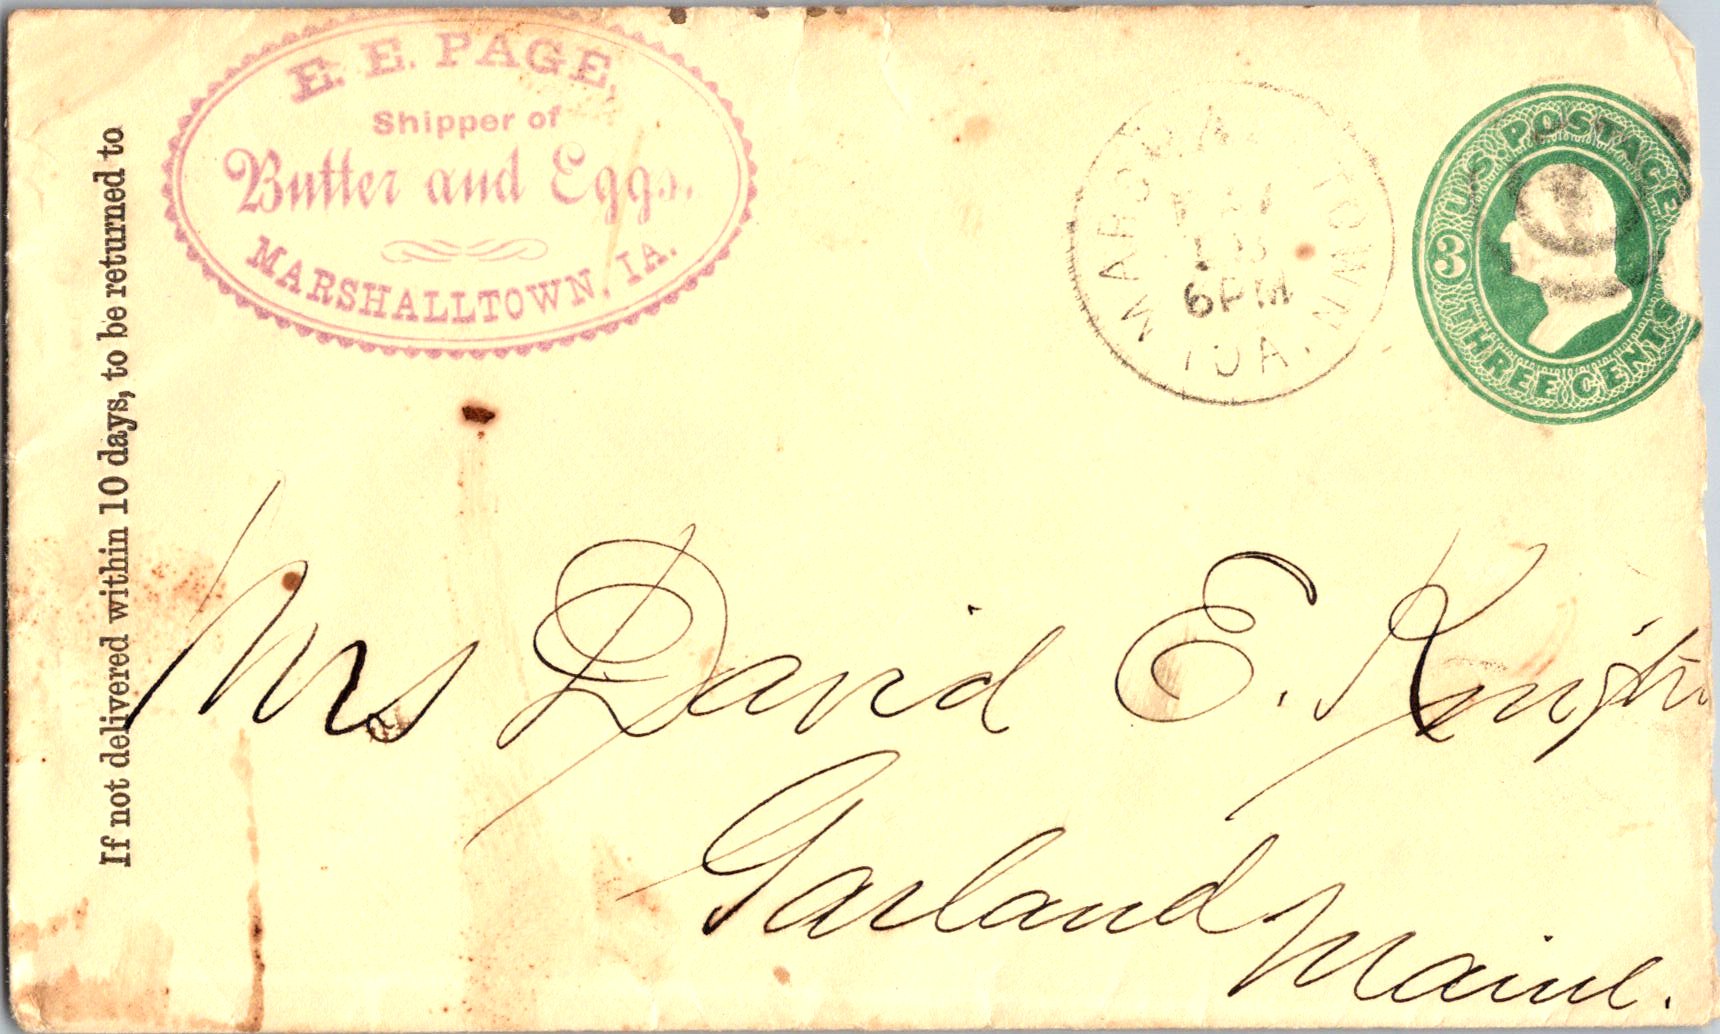 If not delivered within 10 days, to be returned to
E. E. PAGE,
Shipper of
Butter and Eggs.
MARSHALLTOWN, IA.
TOWN
6PM
IOA.
U.S. POSTAGE
3
THREE CENTS
Mrs David E. Knight.
Garland
Maine.